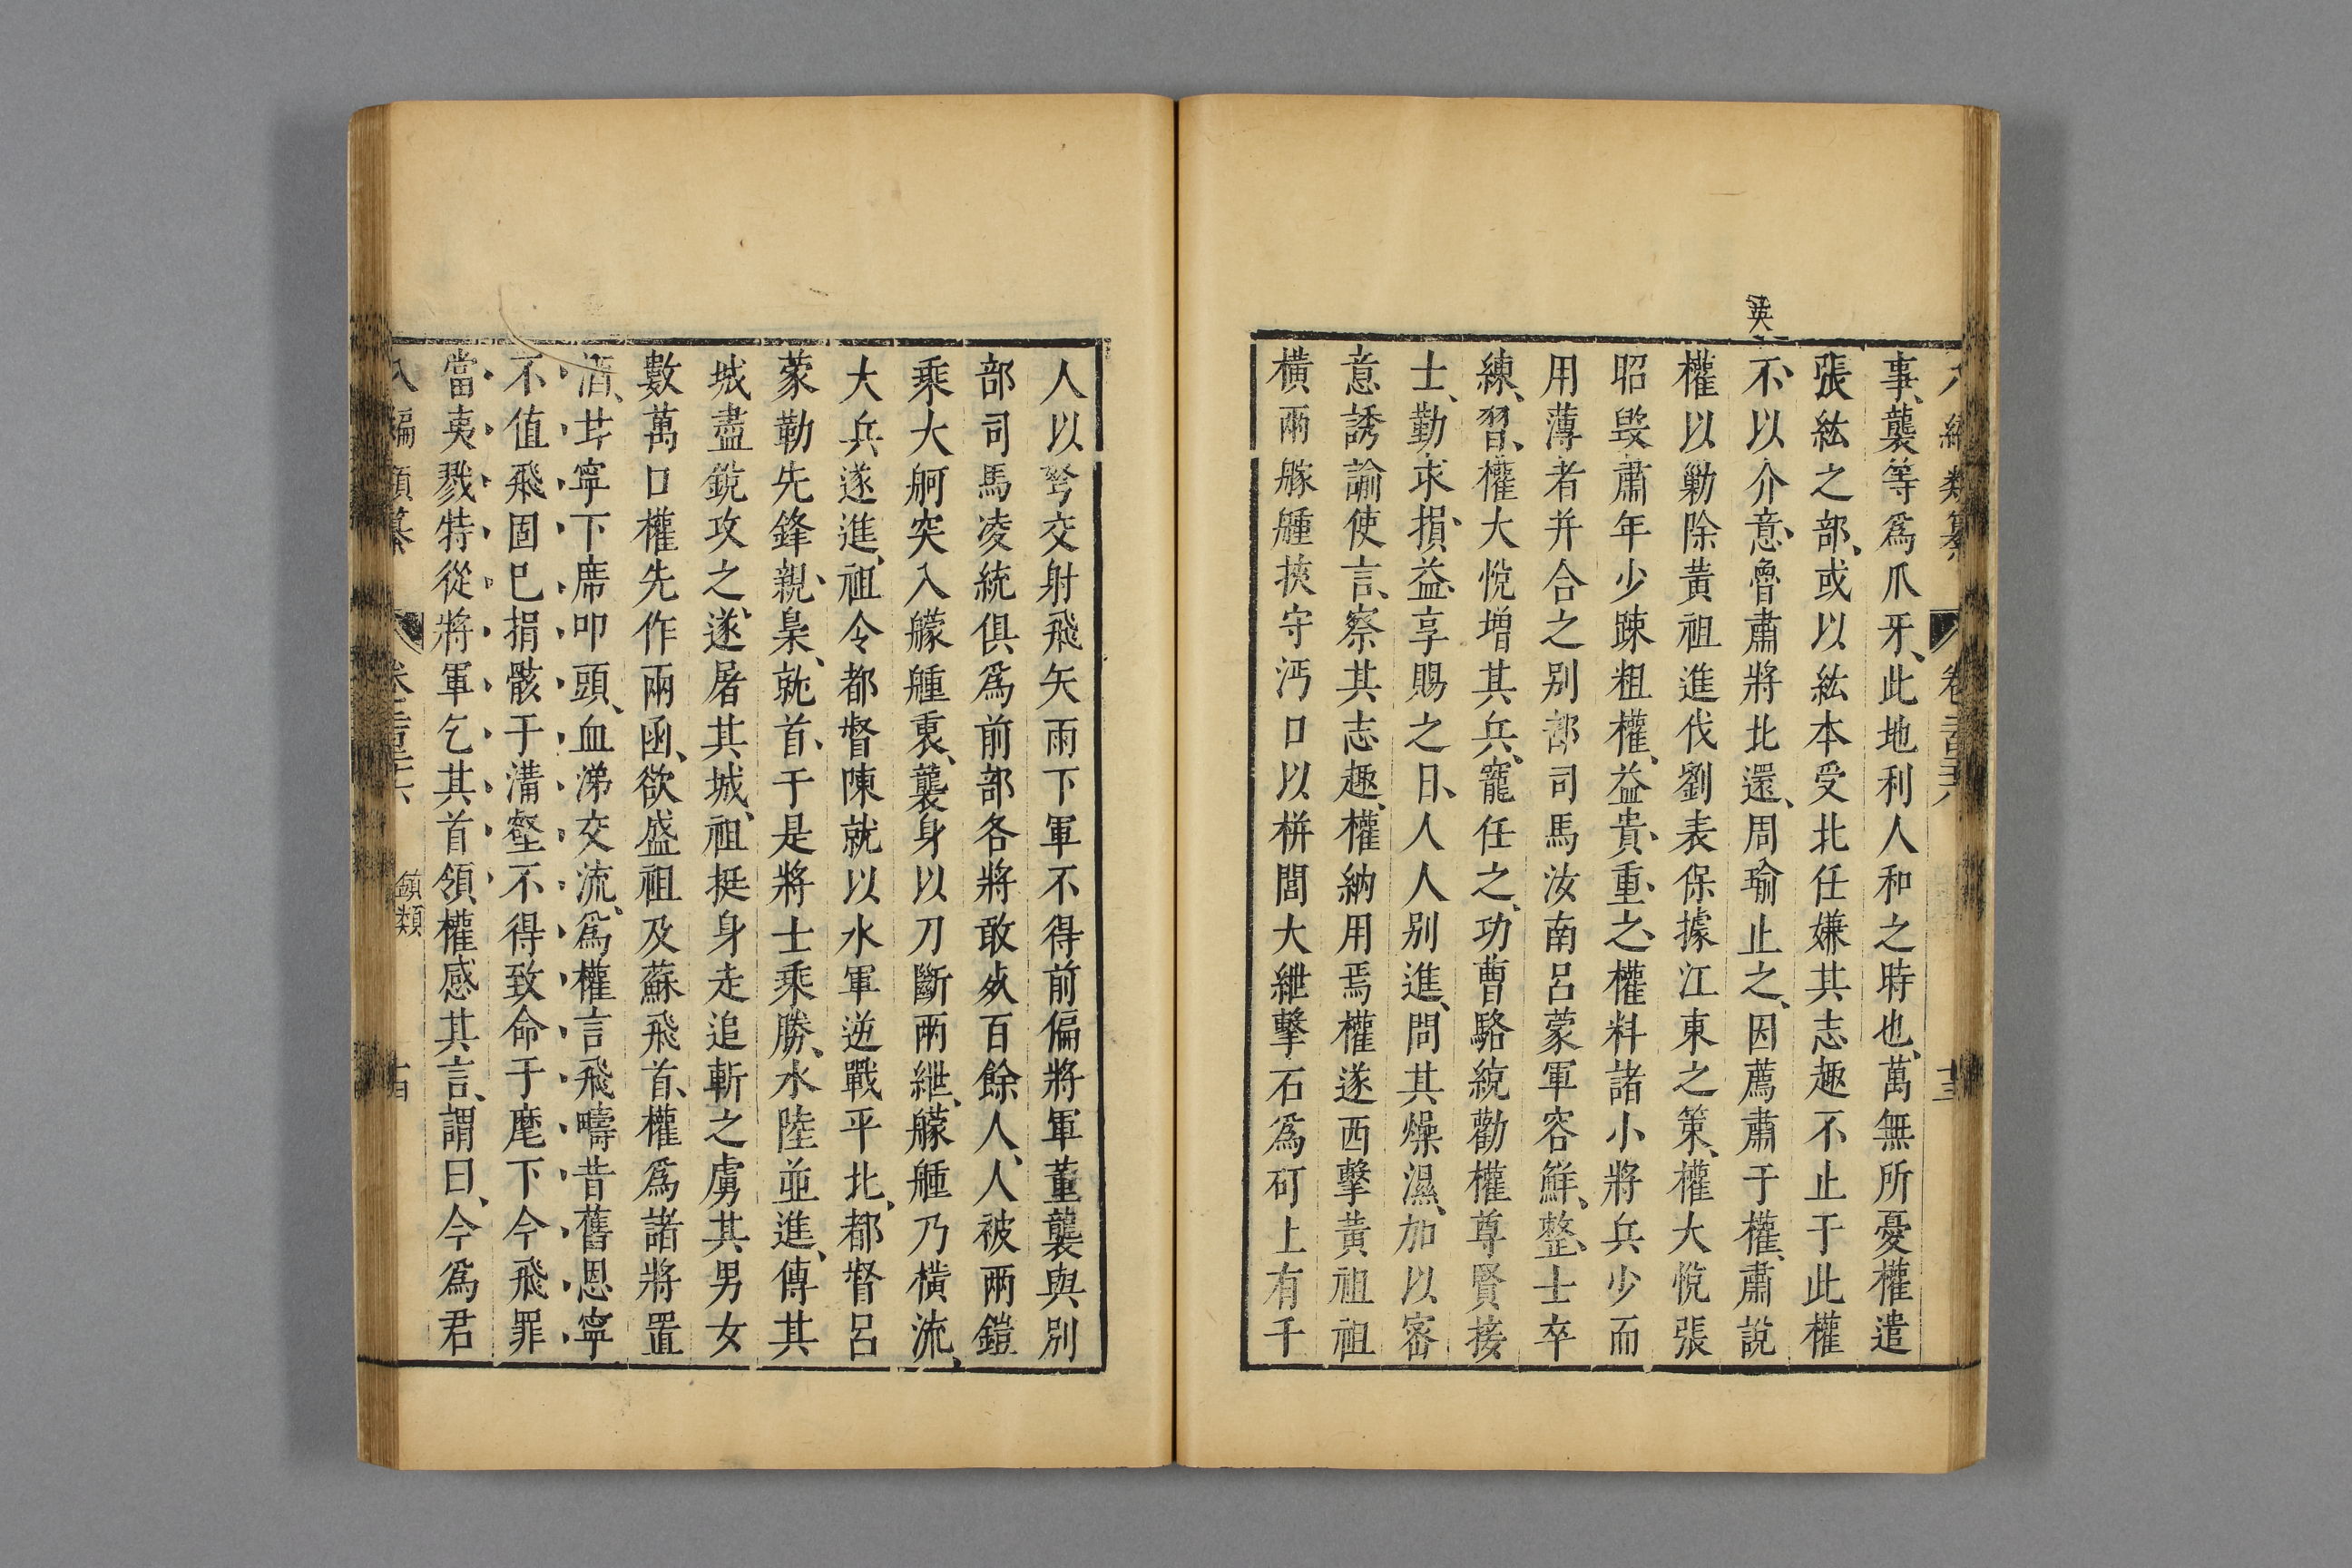 事襲等爲爪牙此地利人和之時也萬無所憂權遣
張紘之部或以紘本受北任嫌其志趣不止于此權
不以介意魯肅將北還周瑜止之因薦肅于權肅說
權以勦除黃祖進伐劉表保據江東之策權大悅張
昭毀肅年少踈粗權益貴重之權料諸小將兵少而
用薄者并合之別部司馬汝南呂蒙軍容鮮整士卒
練習權大悅增其兵寵任之功曹駱統勸權尊賢接
士勤求損益享賜之日人人別進問其燥濕加以密
意誘諭使言察其志趣權納用焉權遂西擊黃祖祖
橫兩艨艟挾守沔口以栟閭大紲擊石爲矴上有千
人以弩交射飛矢雨下軍不得前偏將軍董襲與別
部司馬凌統俱爲前部各將敢㱽百餘人人被兩鎧
乘大舸突入艨艟裏襲身以刀斷兩紲艨艟乃橫流
大兵遂進祖令都督陳就以水軍逆戰平北都督呂
蒙勒先鋒親梟就首于是將士乘勝水陸並進傅其
城盡銳攻之遂屠其城祖挺身走追斬之虜其男女
數萬口權先作兩函欲盛祖及蘇飛首權爲諸將置
酒甘寧下席叩頭血涕交流爲權言飛疇昔舊恩寧
不值飛固已捐骸于溝壑不得致命于麾下今飛罪
當夷戮特從將軍乞其首領權感其言謂曰今爲君